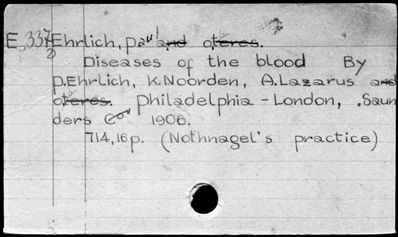 E.337 Ehrlich, paul and oteres.
Diseases of the blood By
p.Ehrlich, K.Noorden, A.Lazarus and
oteres. philadelphia - London, .Saun
ders Co 1906.
714,16p. (Nothnagel's practice)